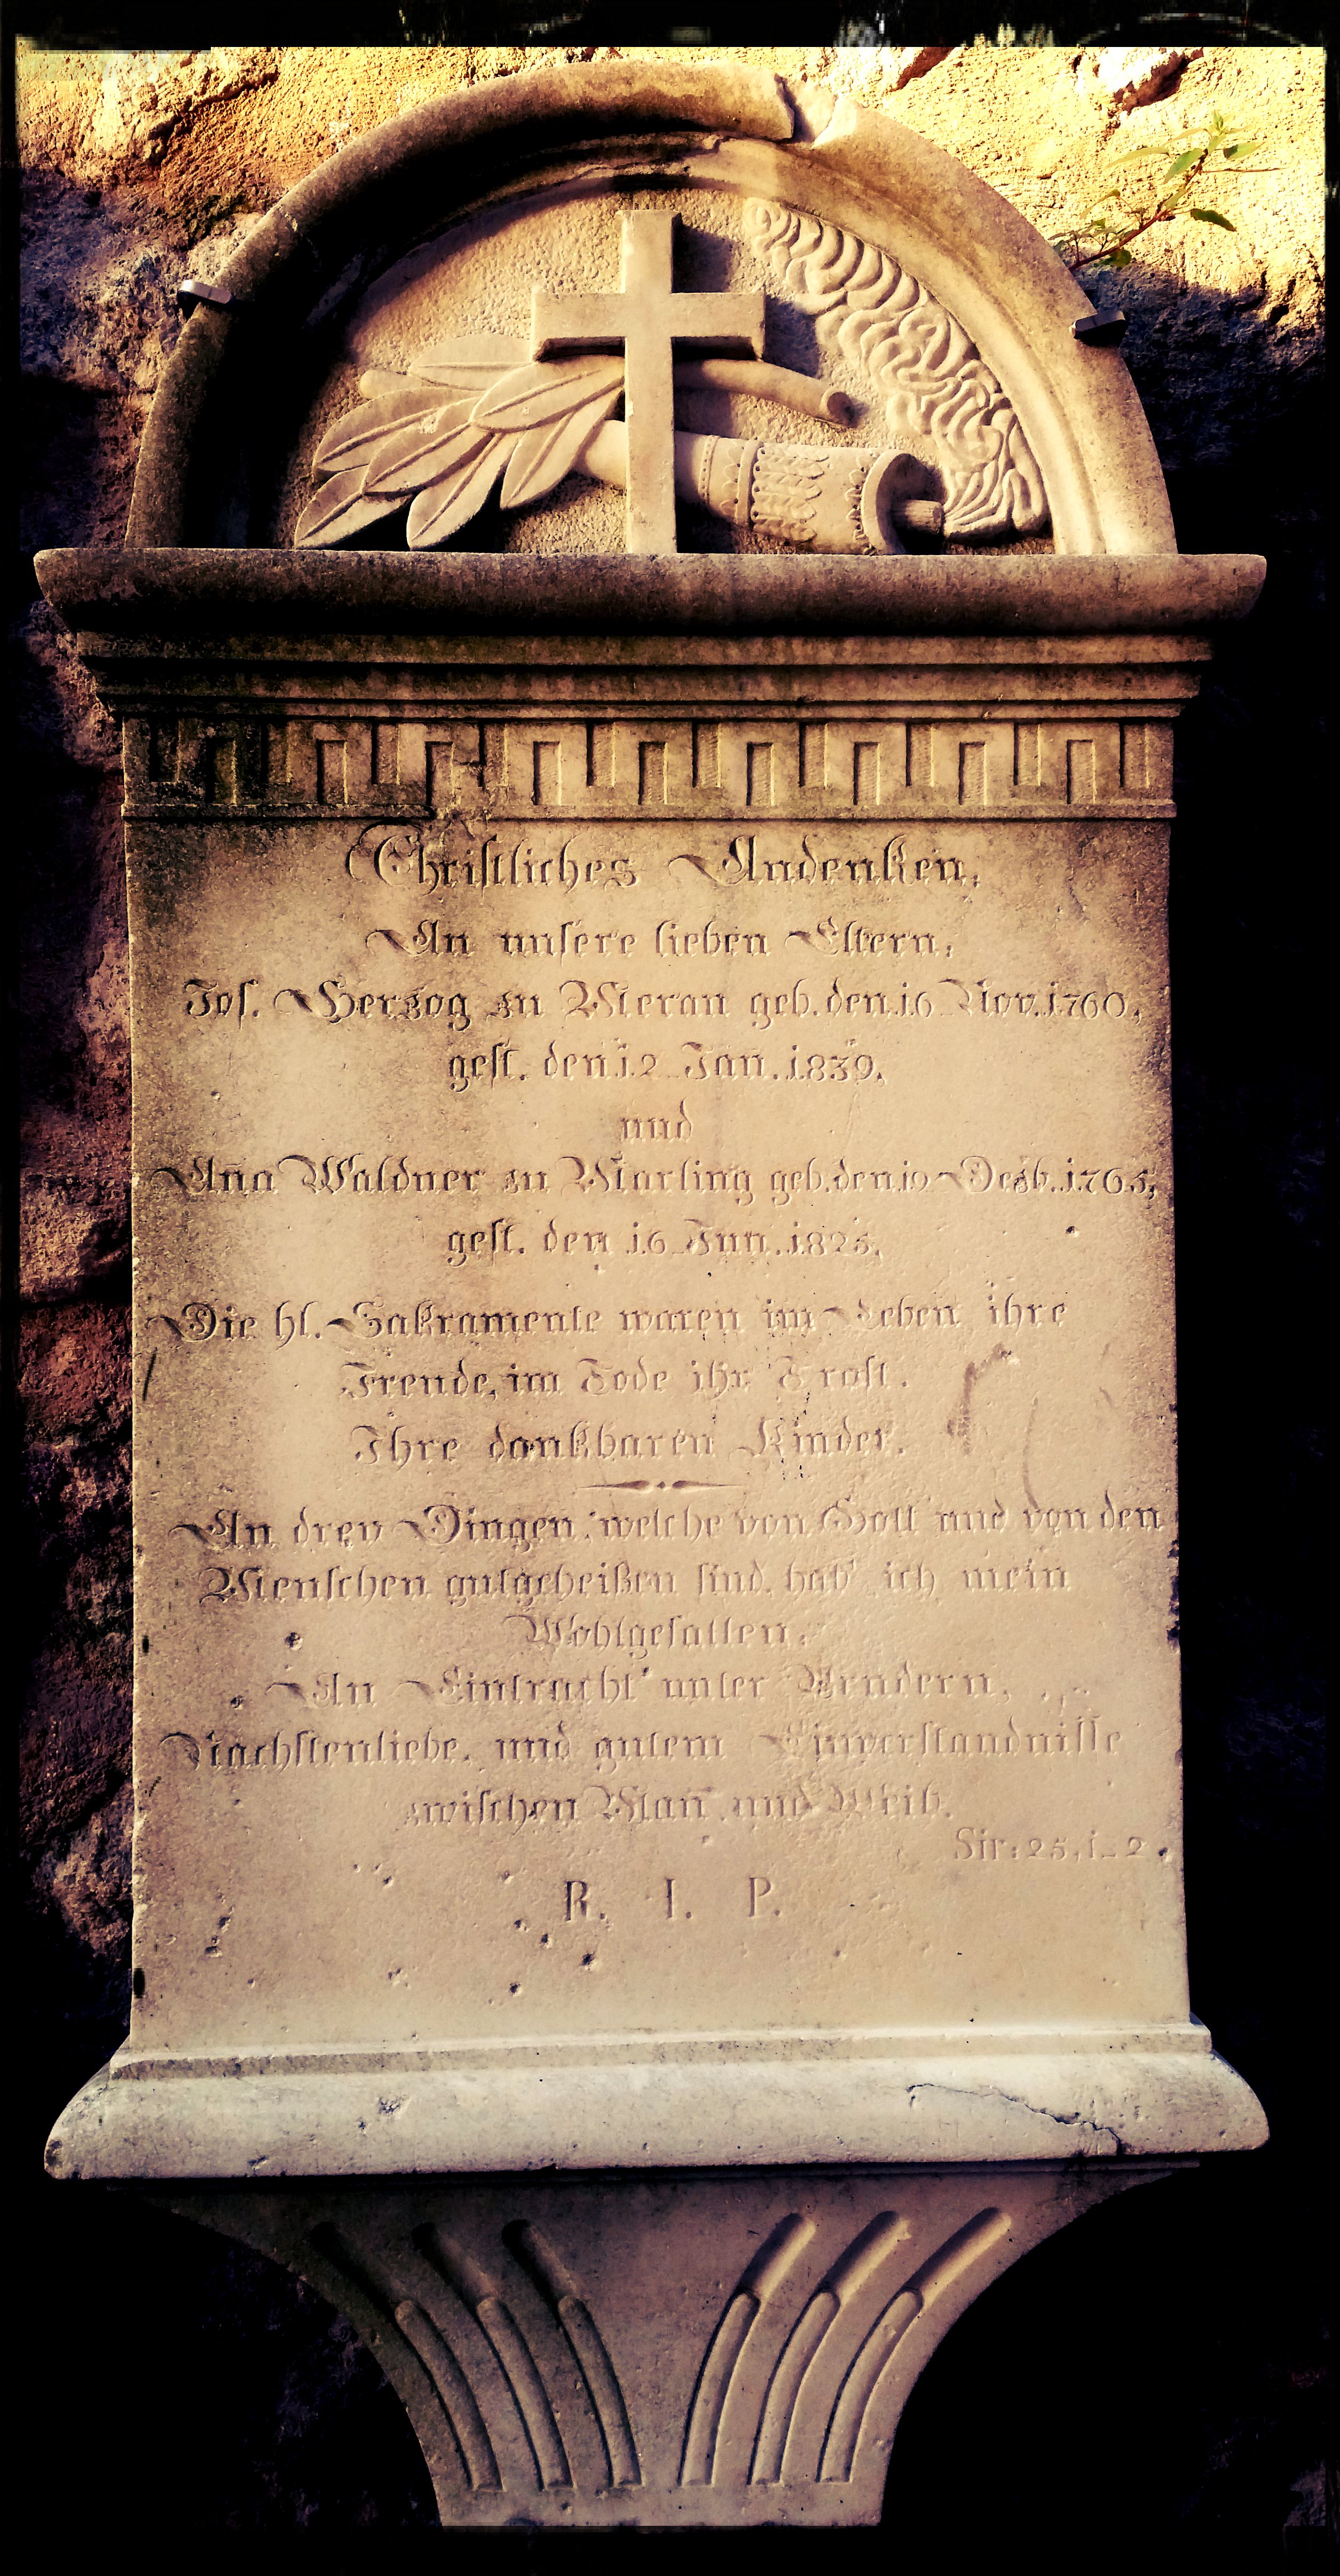 Christliches Andenken,
An unsere lieben Eltern,
Jos. Herzog zu Meran geb. den 16 Nov. 1760,
gest. den 12 Jan. 1839,
und
An̄a Waldner zu Marling geb. den 19 Dezb. 1765,
gest. den 16 Jun. 1825,
Die hl. Sakramente waren im Leben ihre
Freude, im Tode ihr Trost.
Ihre dankbaren Kinder.
An drey Dingen, welche von Gott und von den
Menschen gutgeheißen sind, hab' ich mein
Wohlgefallen:
An Eintracht unter Brudern,
Nachstenliebe, und gutem Einverstandnisse
zwischen Man̄ und Weib.
Sir: 25, 1_2.
R. I. P.